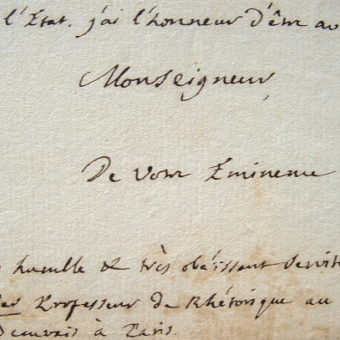 l'État. j'ai l'honneur d'être av
Monseigneur
De votre Éminence
humble & très obéissant Servit
Professeur de Rhétorique au
Beauvais à Paris.